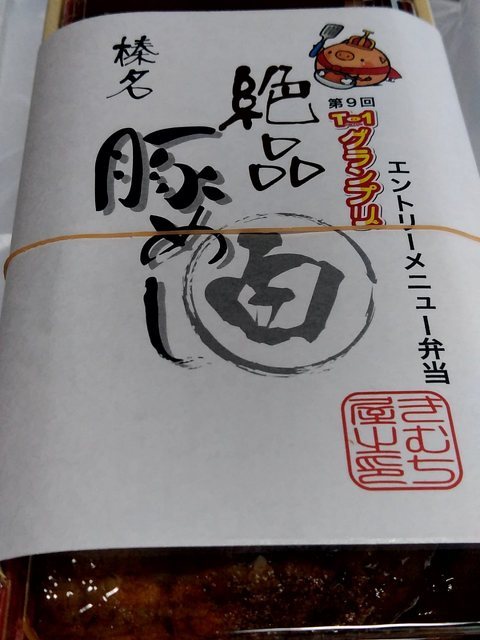 榛名
絶品
豚めし
第9回
T-1グランプリ
エントリーメニュー弁当
きむち
屋之印